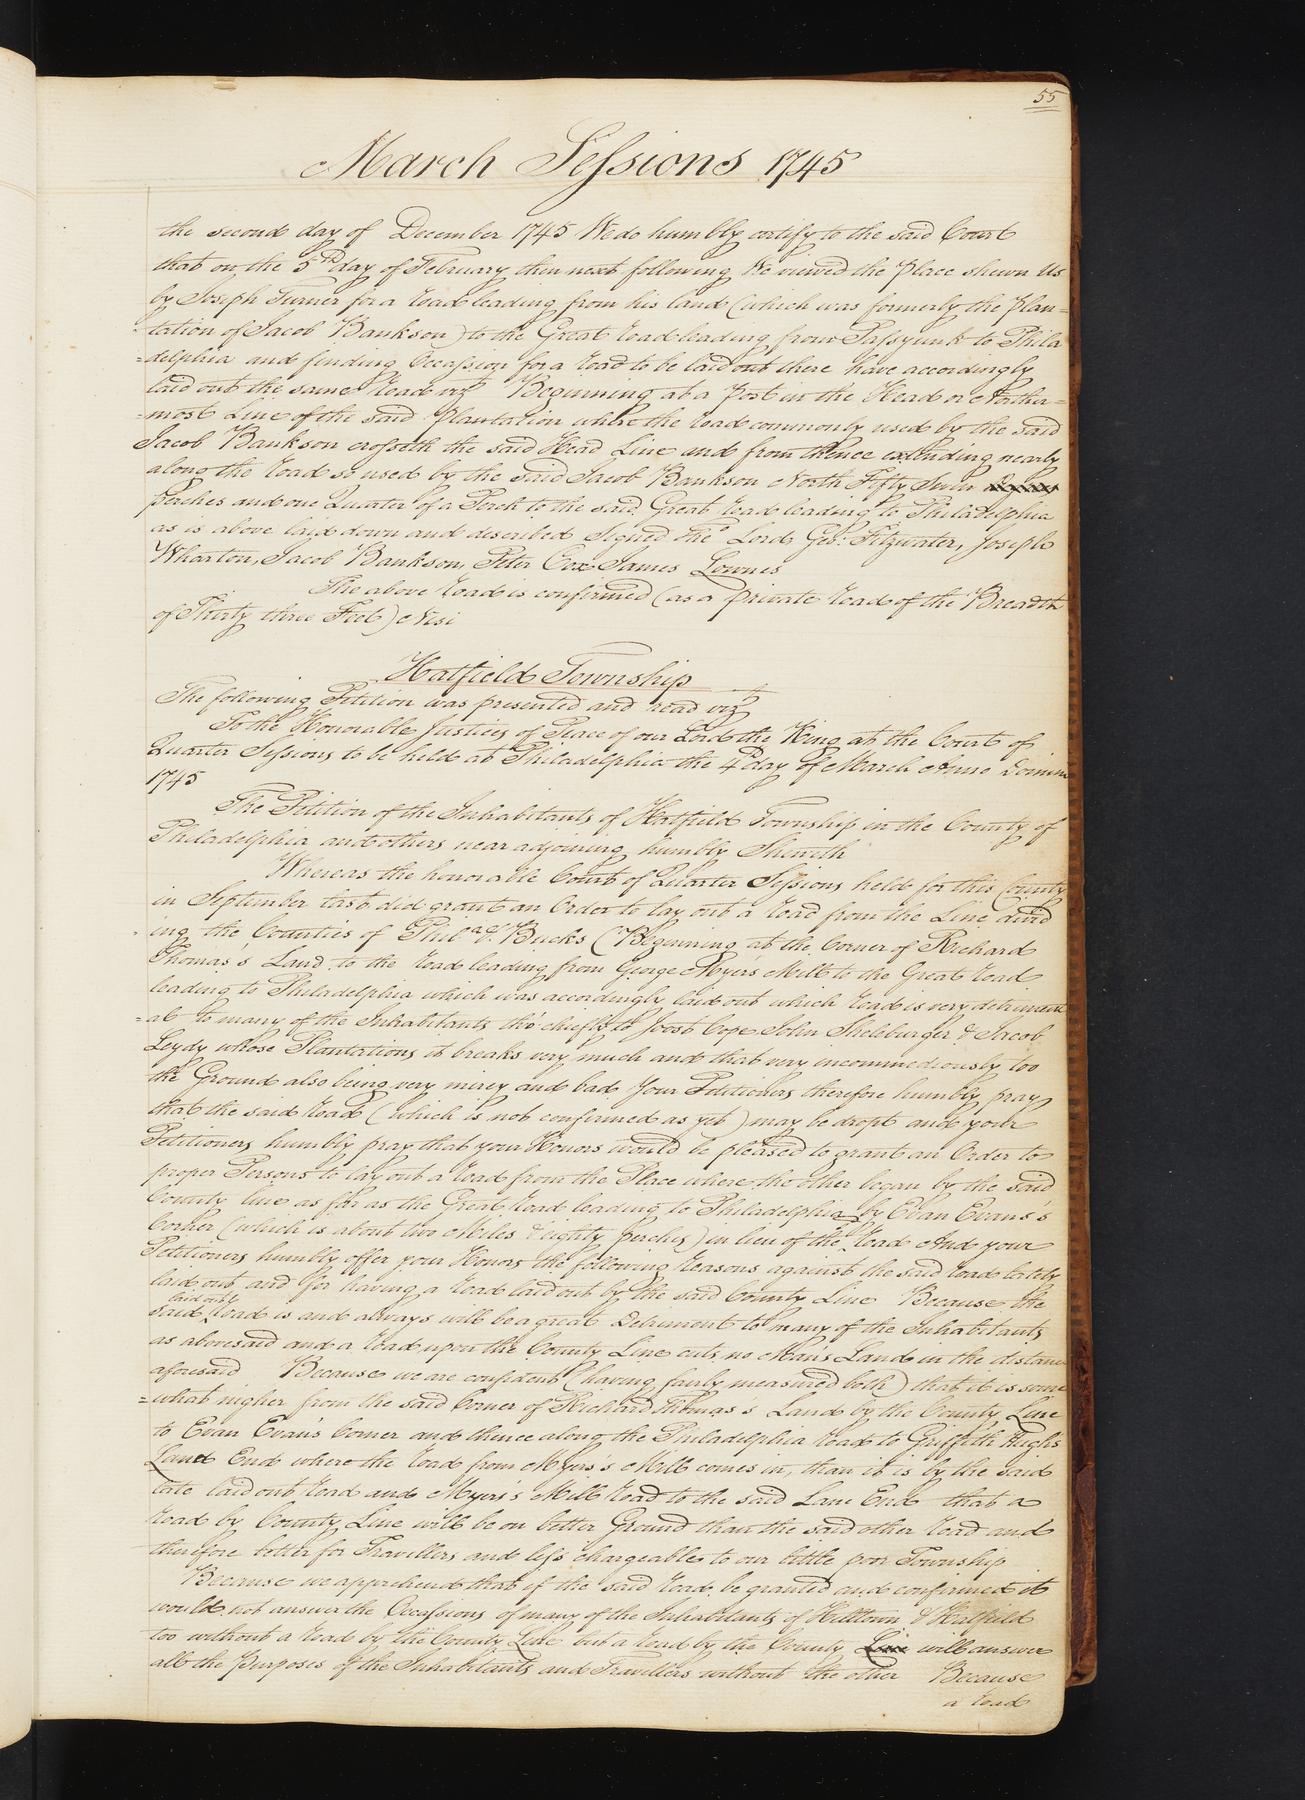 55
March Sessions 1745
the second day of December 1745 We do humbly certify to the said Court
that on the 5th day of February then next following We viewed the Place shewn Us
by Joseph Turner for a road leading from his land (which was formerly the Plan=
=tation of Jacob Bankson) to the Great road leading from Passyunk to Phila
=delphia and finding Occassion for a road to be laid out there have accordingly
laid out the same road vizt Beginning at a Post in the Head or Northe=
=most Line of the said Plantation where the road commonly used by the said
Jacob Bankson crosseth the said Head Line and from thence extending nearly
along the road so used by the said Jacob Bankson North Fifty
Perches and one Quarter of a Perch to the said Great road leading to Philadelphia
as is above laid down and described Signed Thos Lord Geo: Fitzwater, Joseph
Wharton, Jacob Bankson, Peter Cox James Lownes
The above road is confirmed (as a private road of the Breadth
of Thirty three Feet) Nisi
Hatfield Township
The following Petition was presented and read vizt
To the Honorable Justices of Peace of our Lord the King at the Court of
Quarter Sessions to be held at Philadelphia the 4th day of March Anno Domini
1745
The Petition of the Inhabitants of Hatfield Township in the County of
Philadelphia and others near adjoining humbly Sheweth
Whereas the honorable Court of Quarter Sessions held for this County
in September last did grant an Order to lay out a road from the Line divid
=ing the Counties of Phila & Bucks (Beginning at the Corner of Richard
Thomas's Land to the road leading from George Myers Mill to the Great road
leading to Philadelphia which was accordingly laid out which road is very detriment
=al to many of the Inhabitants tho' chiefly to Joost Cope John Sheleburger & Jacob
Leydy whose Plantations it breaks very much and that very incommodiously too
the Ground also being very mirey and bad Your Petitioners therefore humbly pray
that the said road (which is not confirmed as yet) may be dropt and your
Petitioners humbly pray that your Honors would be pleased to grant an Order to
proper Persons to lay out a road from the Place where the other began by the said
County line as far as the Great road leading to Philadelphia by Evan Evans's
Corner (which is about two Miles & eighty perches) in lieu of the road And your
Petitioners humbly offer your Honors the following reasons against the said road lately
laid out and for having a road laid out by the said County Line Because the
said laid out road is and always will be a great Detriment to many of the Inhabitants
as abovesaid and a road upon the County Line cuts no Man's Land in the distance
aforesaid Because we are confident (having fairly measured both) that it is some
=what nigher from the said Corner of Richard Thomas's Land by the County Line
to Evan Evan's Corner and thence along the Philadelphia road to Griffith Hugh's
Land End where the road from Myers's Mill comes in, than it is by the said
late laid out road and Myers's Mill road to the said Lane End that a
road by County Line will be on better Ground than the said other road and
therefore better for Travellers and less chargeable to our little poor Township
Because we apprehend that if the said road be granted and confirmed it
would not answer the Occassions of many of the Inhabitants of Hilltown & Hatfield
too without a road by the County Line but a road by the County Line will answer
all the purposes of the Inhabitants and Travellers without the other Because
a road